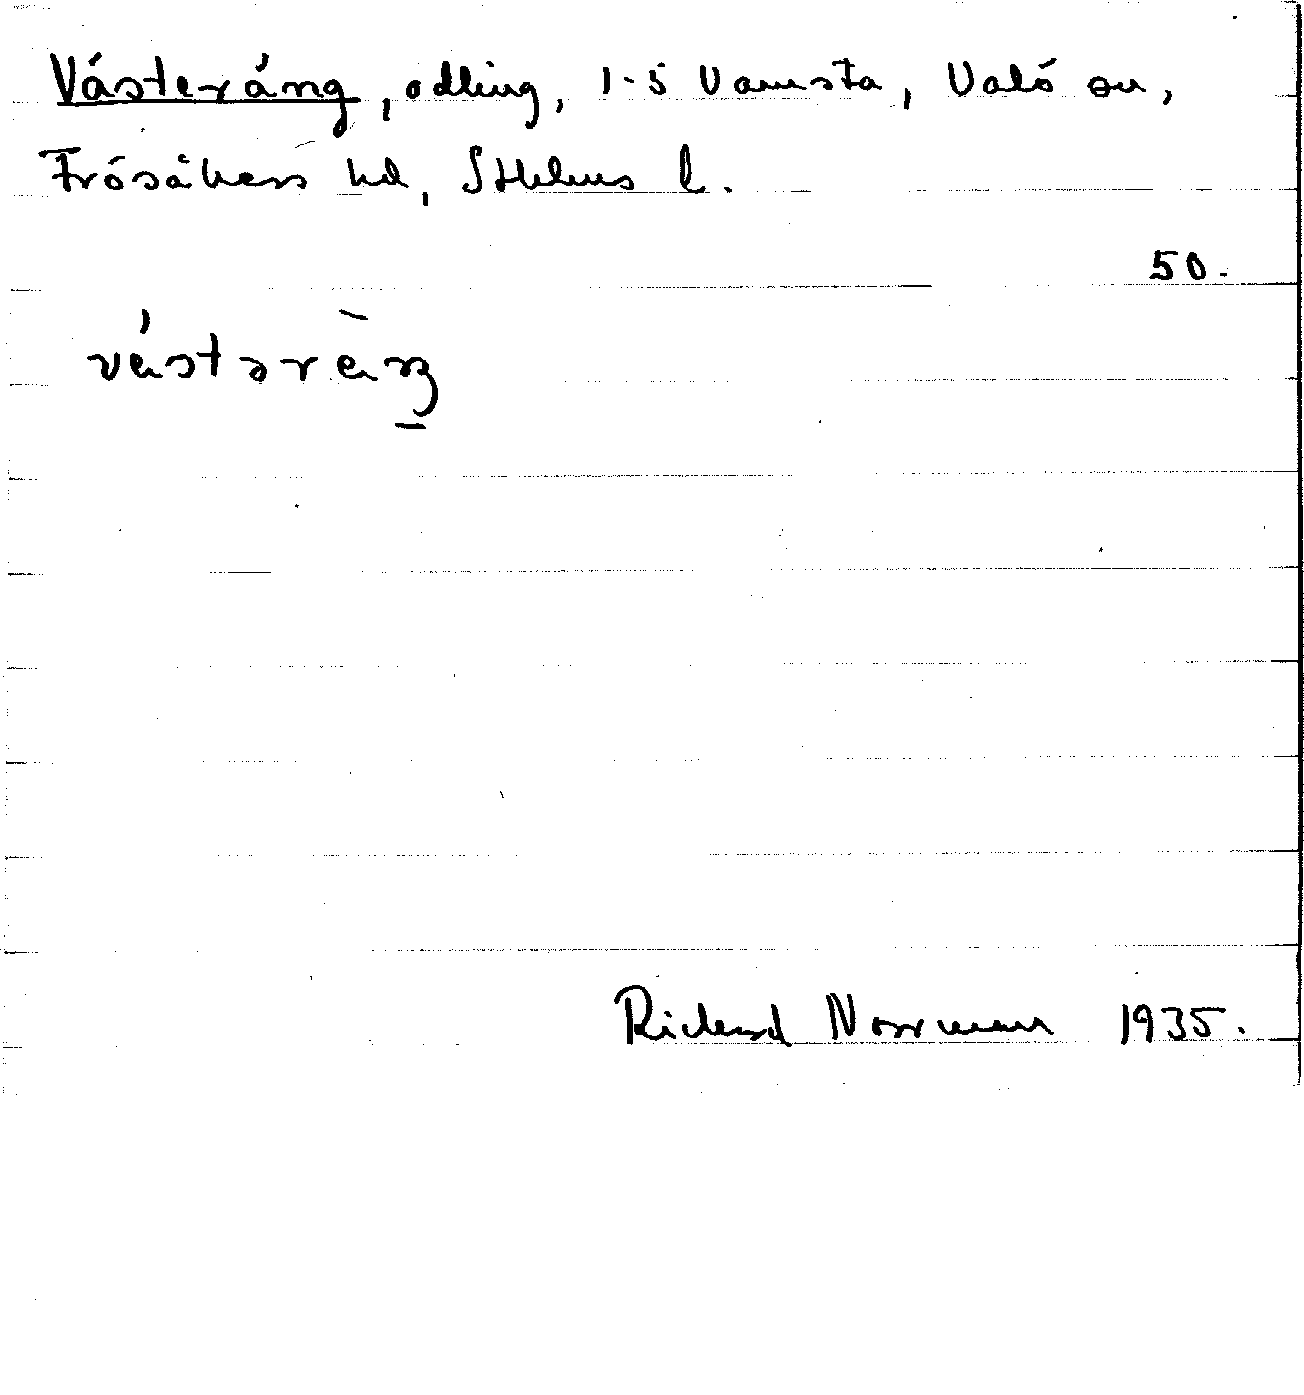 Västeräng, odling, 1-5 Vamsta, Valö sn,
Frösåkers hd, Sthlms l.
50.
västəräŋ
Richard Norrman 1935.